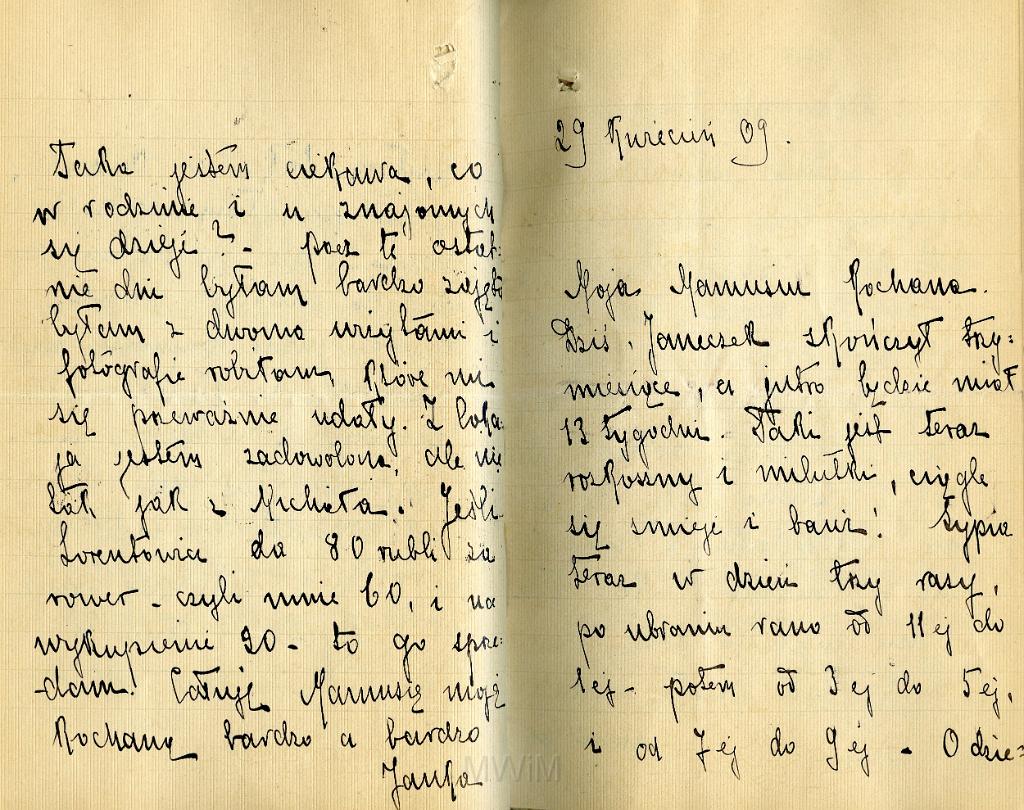 29 Kwiecień 09.
Moja Mamusiu Kochana.
Dziś, Janeczek skończył trzy-
miesiące, a jutro będzie miał
13 tygodni. Taki jest teraz
rozkoszny i milutki, ciągle
się smieje i bawi! Sypia
teraz w dzień trzy razy,
po ubraniu rano od 11ej do
1ej - potem od 3ej do 5ej,
i od 7ej do 9ej - O dzie=
Taka jestem ciekawa, co
w rodzinie i u znajomych
się dzieje? - Przez te ostat-
nie dni byłam bardzo zajęta
byłam z dwoma wizytami i
fotografie robiłam, które mi
się przeważnie udały. Z
jestem zadowolona, ale nie
tak jak z Michała. Jeśli
Lorentowicz da 80 rubli za
rower - czyli mnie 60, i na
wykupienie 20 - to go sprze-
dam. Całuję Mamusię moją
Kochaną bardzo a bardzo
Janka
MWiM